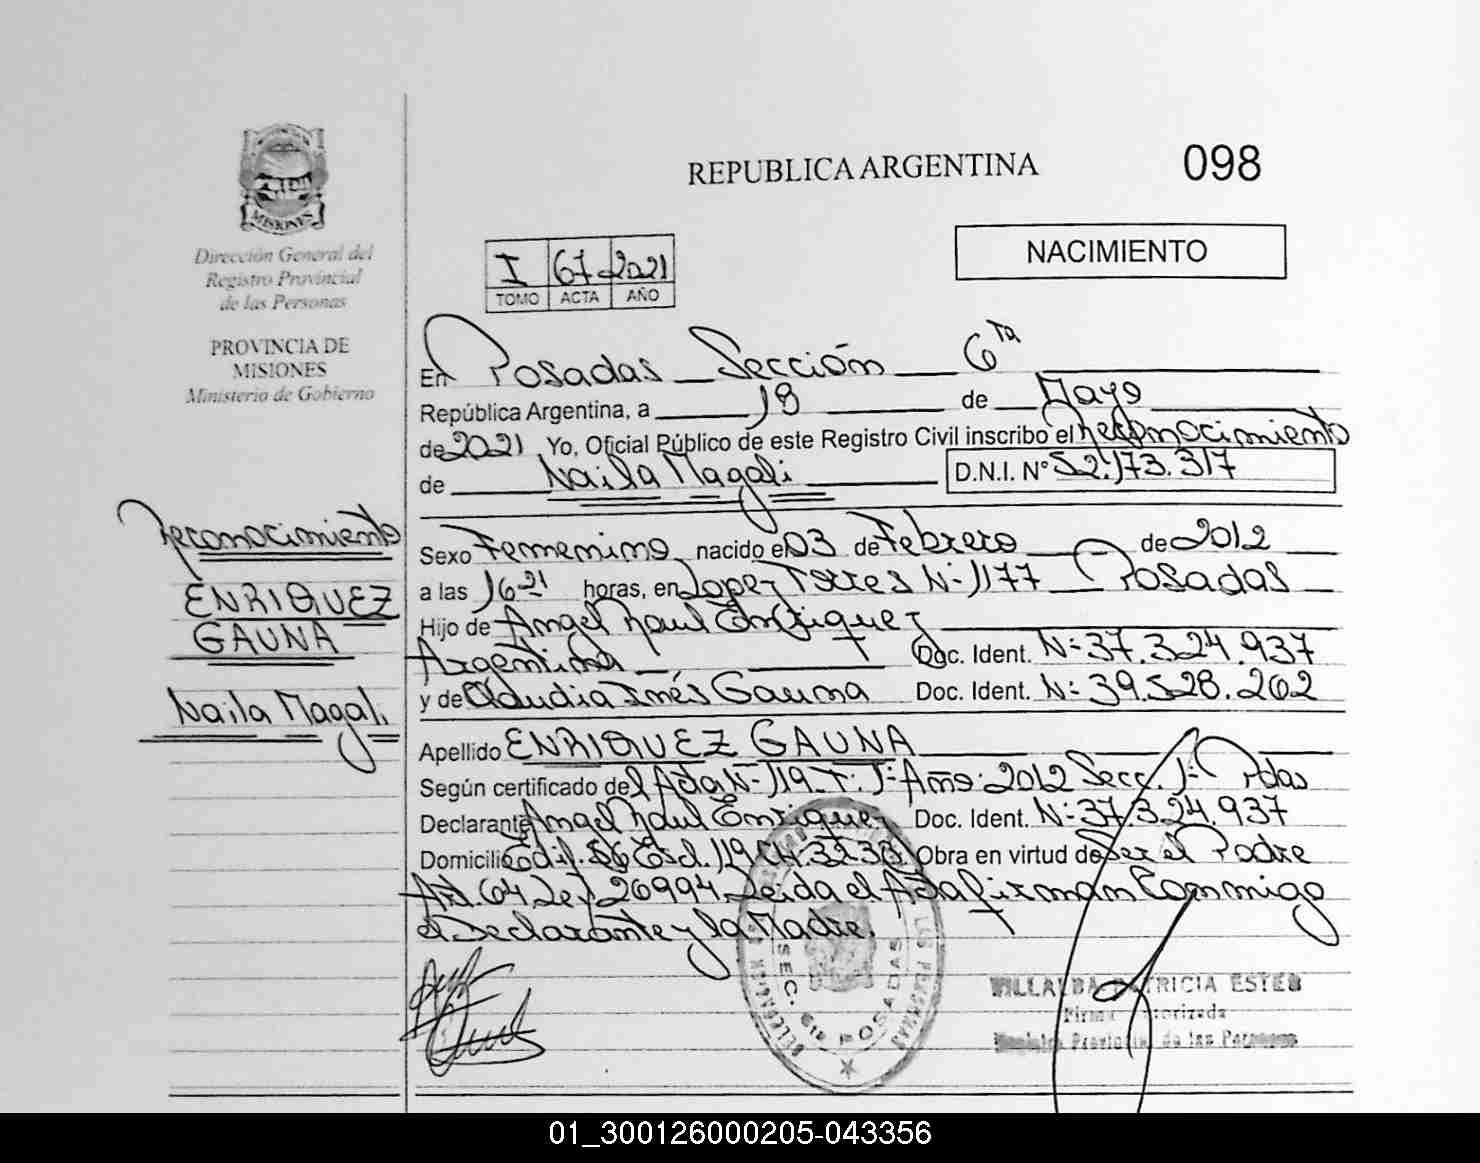 REPUBLICA ARGENTINA
098
MISIONES
Dirección General del
Registro Provincial
de las Personas
PROVINCIA DE
MISIONES
Ministerio de Gobierno
I 67 2021
TOMO ACTA AÑO
NACIMIENTO
En Posadas Sección 6ta
República Argentina, a 18 de Mayo
de 2021 Yo, Oficial Público de este Registro Civil inscribo el Reconocimiento
de Naila Magali D.N.I. N° 52.173.317
Reconocimiento
ENRIQUEZ
GAUNA
Naila Magali
Sexo Femenino nacido el 03 de Febrero de 2012
a las 16 21 horas, en Lopez Torres N- 1177 Posadas
Hijo de Angel Raul Enriquez
Argentina Doc. Ident. N- 37.324.937
y de Claudia Inés Gauna Doc. Ident. N- 39.528.262
Apellido ENRIQUEZ GAUNA
Según certificado del Acta N- 119 T: 1- Año: 2012 Secc. 1- Pdas
Declarante Angel Raul Enriquez Doc. Ident. N- 37.324.937
Domicilio Edif. 56 Esc. 119 CH. 32-33 Obra en virtud de Ser el Padre
Art. 64 Ley 26994. Leida el Acta firman Conmigo
el Declarante y la Madre.
SEC. 6ta POSADAS
VILLALBA PATRICIA ESTER
Firma Autorizada
Registro Provincial de las Personas
01_300126000205-043356